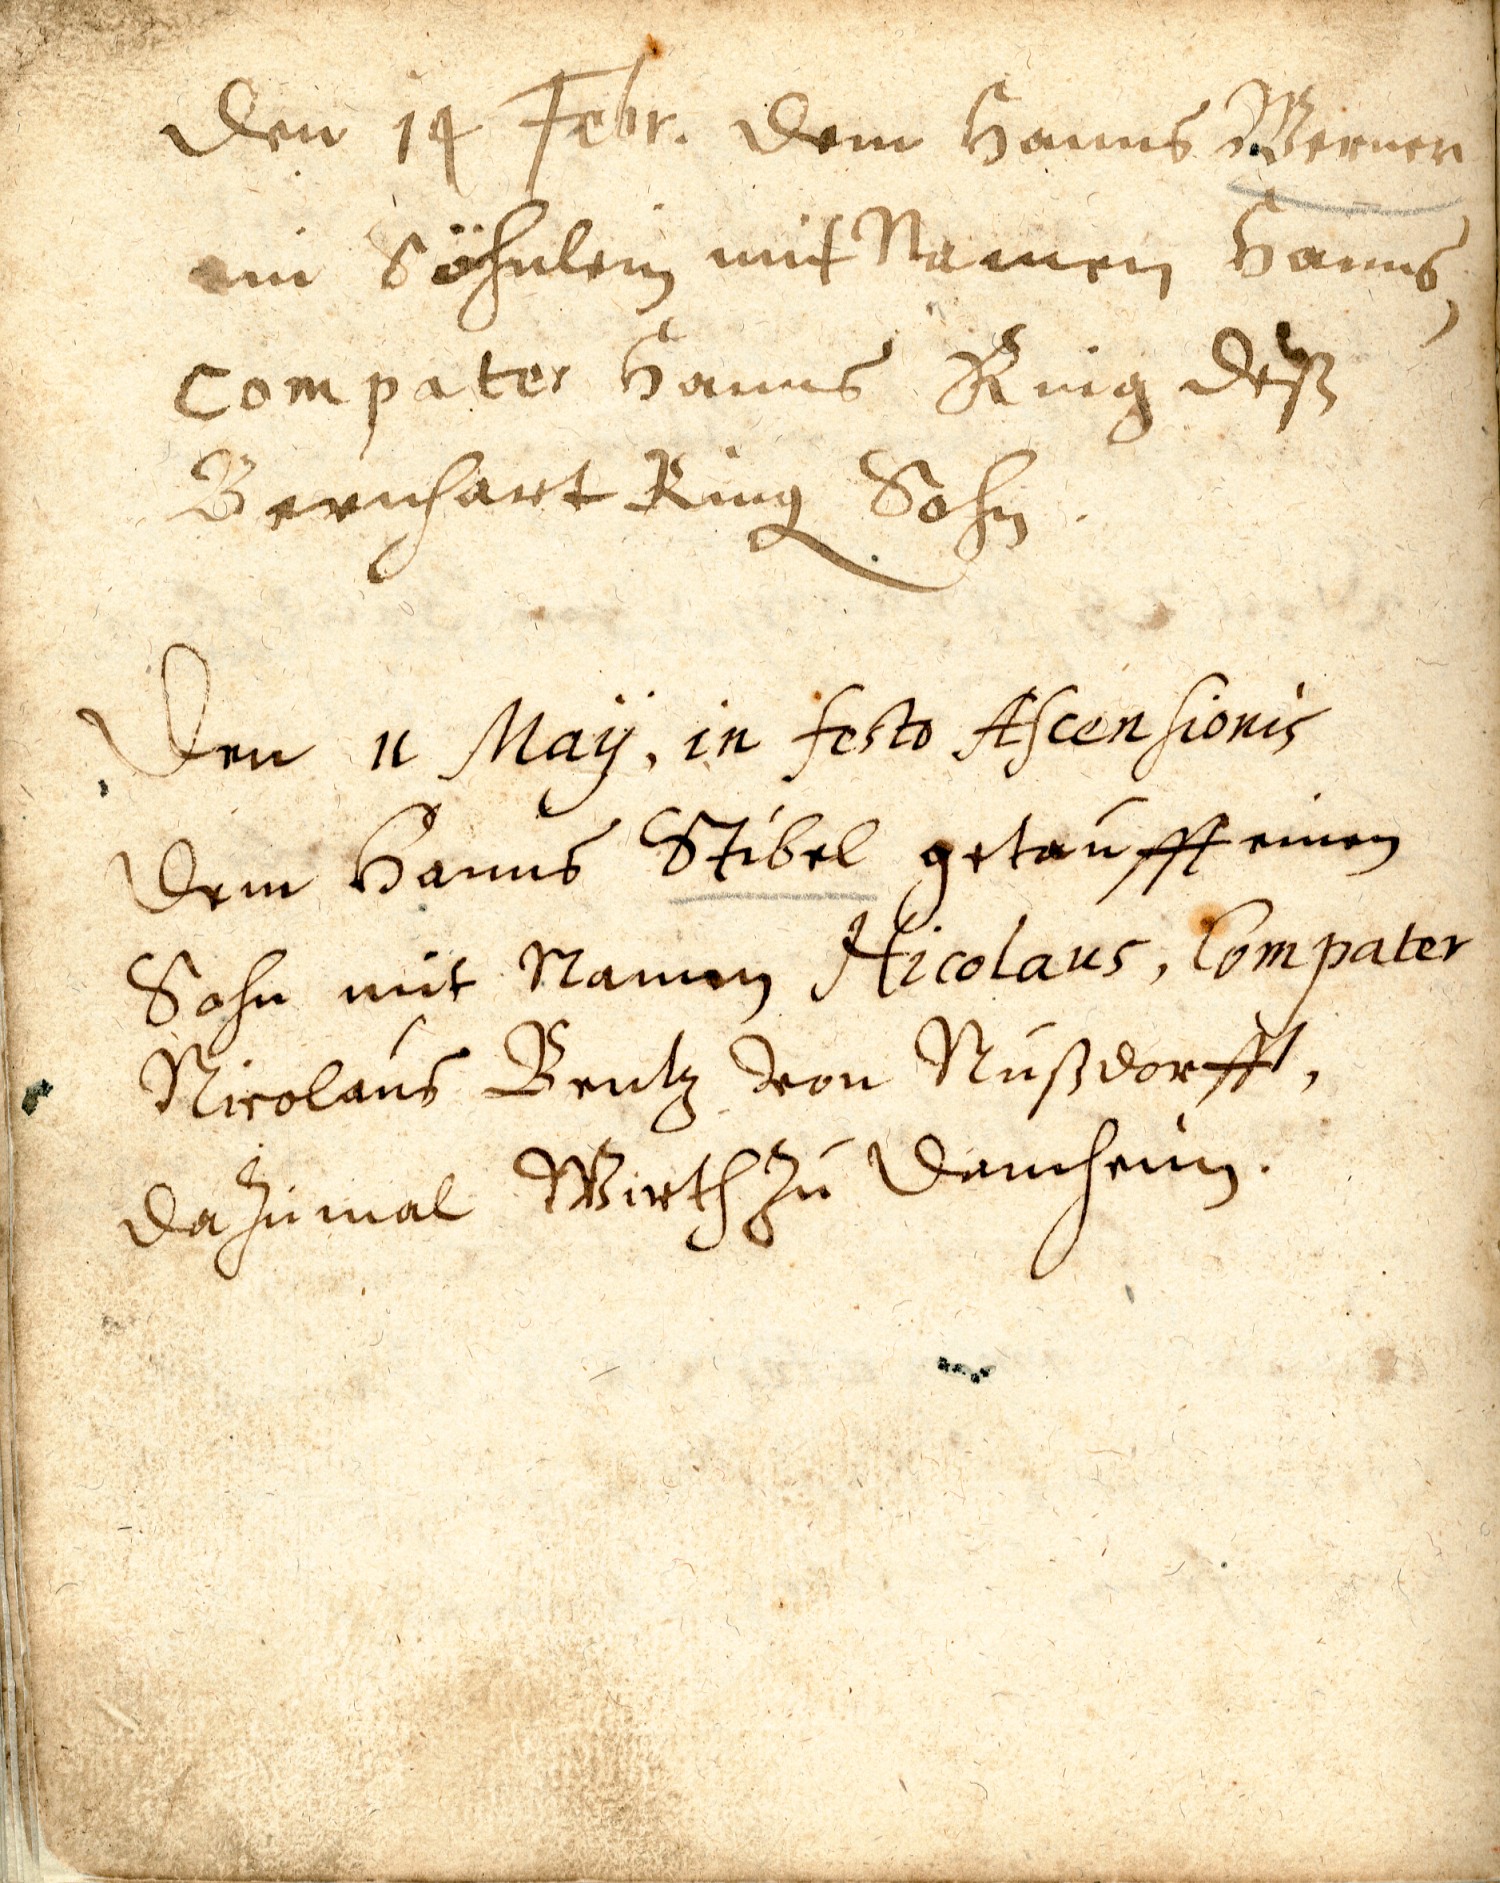 Den 14 Febr. dem Hanns Werner
ein Söhnlein mit Namen Hanns,
Compater Hanns Ring deß
Bernhart Ring Sohn.
Den 11 Maÿ, in festo Ascensionis
dem Hanns Stibel getaufft einen
Sohn mit Namen Nicolaus, Compater
Nicolaus Bentz von Nußdorfft,
dazumal Wirth zu Damheim.